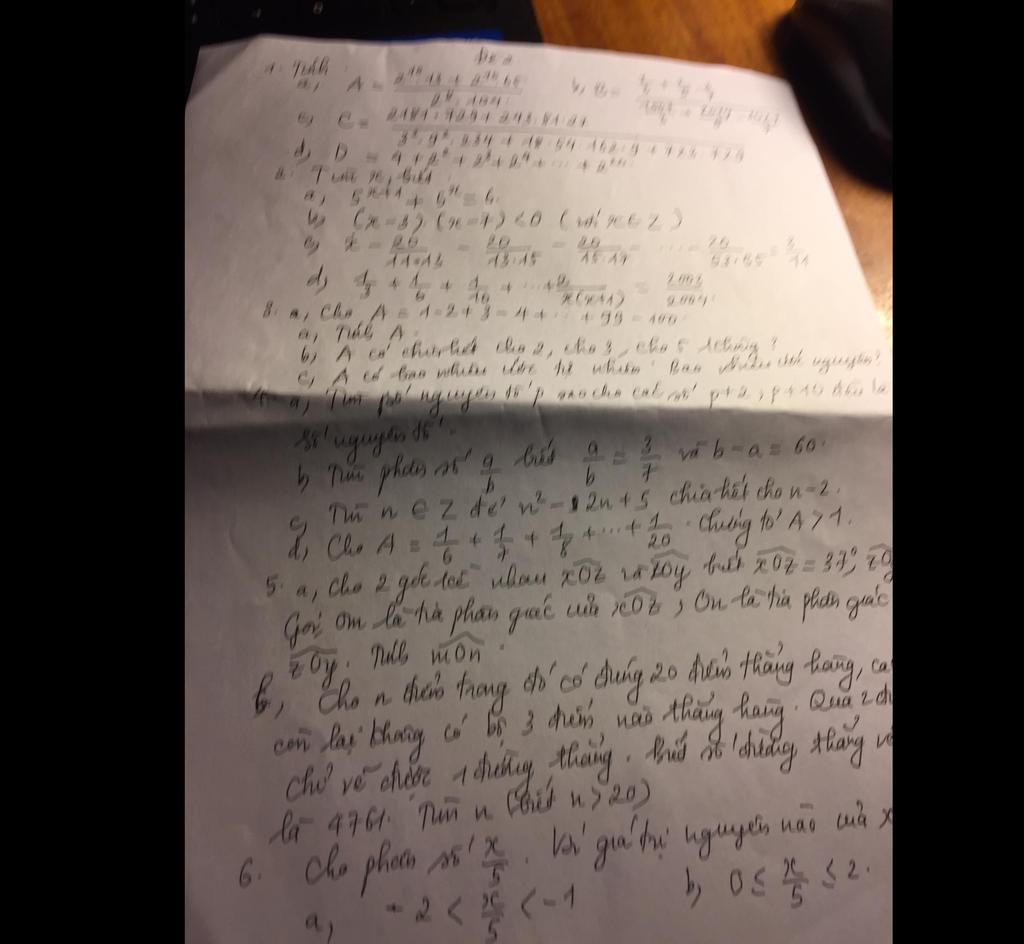 1. Tính
a, A = (2¹⁰.13 + 2¹⁰.65) / (2⁸.104)
c, C = (2181.729 + 243.81.27) / (3².9².234 + 18.54.162.9 + 723.729)
d, D = 4 + 2² + 2³ + 2⁴ + ... +
2. Tìm x, biết
a, 5ˣ⁺¹ + 5ˣ = 6.
b, (x-3).(x-7) < 0 (với x ∈ Z)
c, x - 20/11.13 - 20/13.15 - 20/15.17 - ... - 20/53.55 = 3/11
d, 1/3 + 1/6 + 1/10 + ... + 2/x(x+1) = 2003/2004.
3. a, Cho A = 1-2+3-4+...+99-100.
a, Tính A.
b, A có chia hết cho 2, cho 3, cho 5 không?
c, A có bao nhiêu ước tự nhiên. Bao nhiêu ước nguyên?
4. a, Tìm số nguyên tố p sao cho các số p+2, p+10 đều là
số nguyên tố.
b, Tìm phân số a/b biết a/b = 3/7 và b-a = 60.
c, Tìm n ∈ Z để n² - 2n + 5 chia hết cho n-2.
d, Cho A = 1/6 + 1/7 + 1/8 + ... + 1/20. Chứng tỏ A > 1.
5. a, Cho 2 góc kề nhau xOz và zOy biết xOz = 37°,
Gọi Om là tia phân giác của xOz, On là tia phân giác
zOy. Tính mOn.
b, Cho n điểm trong đó có đúng 20 điểm thẳng hàng,
còn lại không có bộ 3 điểm nào thẳng hàng. Qua 2
chỉ vẽ được 1 đường thẳng. Biết số đường thẳng
là 4761. Tìm n (biết n > 20)
6. Cho phân số x/5. Với giá trị nguyên nào của x
a, -2 < x/5 < -1 b, 0 ≤ x/5 ≤ 2.